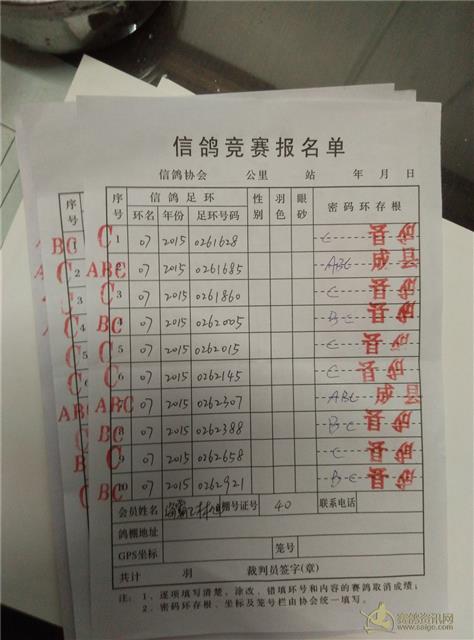 信鸽竞赛报名单
信鸽协会 公里 站 年 月 日
序号 信鸽足环 性别 羽色 眼砂 密码环存根
环名 年份 足环号码
C 1 07 2015 0261628 C
ABC 2 07 2015 0261685 ABC
C 3 07 2015 0261860 C
BC 4 07 2015 0262005 B C
C 5 07 2015 0262015 C
C 6 07 2015 0262145 C
ABC 7 07 2015 0262307 ABC
BC 8 07 2015 0262388 B C
C 9 07 2015 0262658 C
BC 10 07 2015 0262921 B C
会员姓名 棚号证号 40 联系电话
鸽棚地址
GPS坐标 笼号
共计 羽 裁判员签字(章)
注：1、逐项填写清楚，涂改、错填环号和内容的赛鸽取消成绩；
2、密码环存根、坐标及笼号栏由协会统一填写。
赛鸽资讯网
www.saige.com